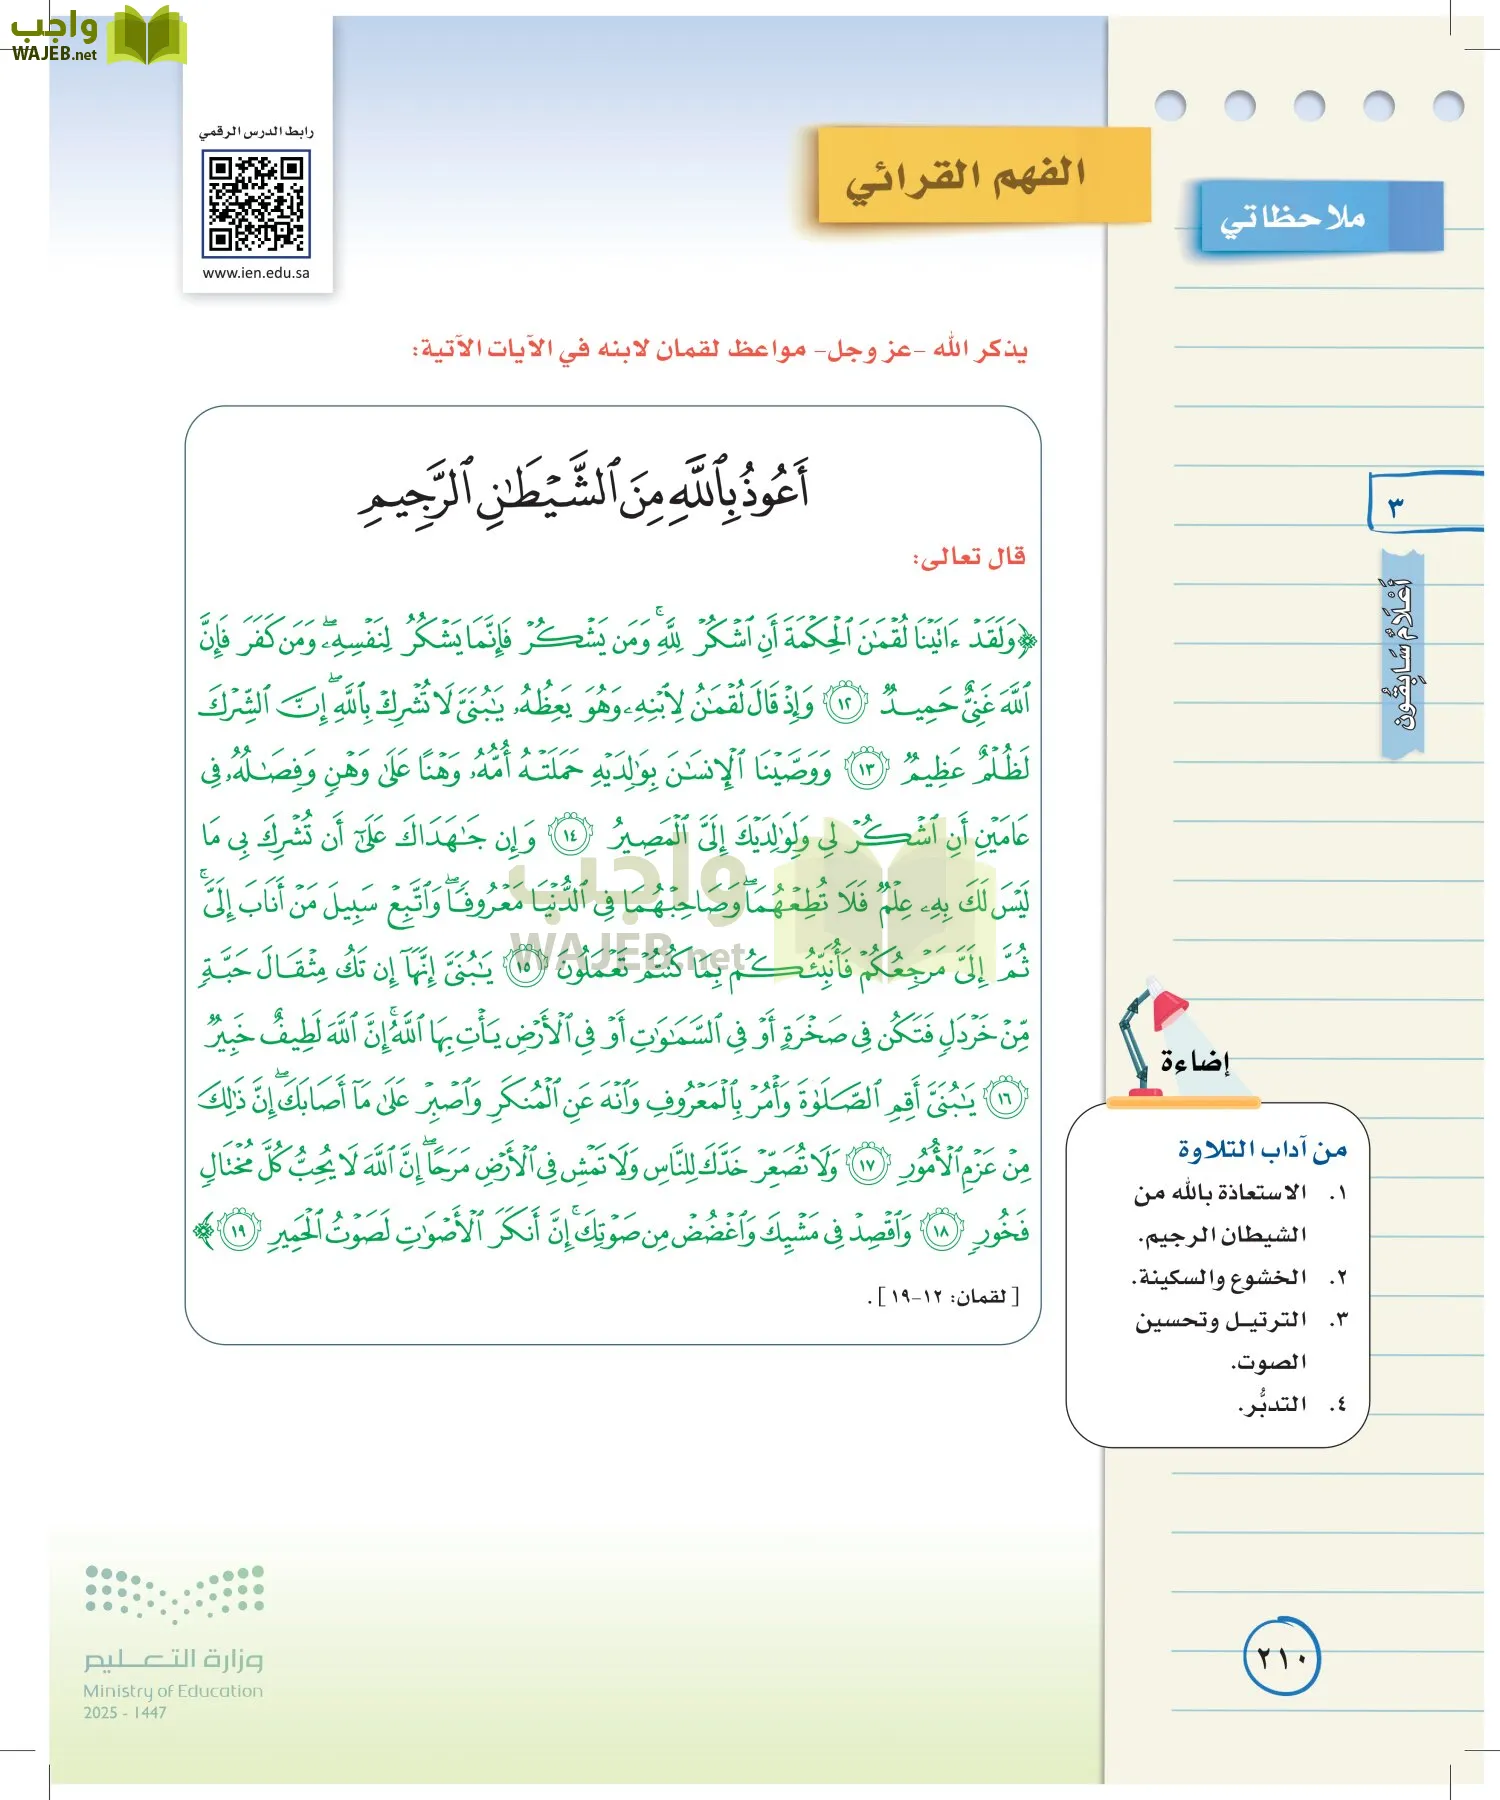 واجب
WAJEB.net
رابط الدرس الرقمي
www.ien.edu.sa
الفهم القرائي
ملاحظاتي
يذكر الله -عز وجل- مواعظ لقمان لابنه في الآيات الآتية:
أَعُوذُ بِٱللَّهِ مِنَ ٱلشَّيۡطَٰنِ ٱلرَّجِيمِ
قال تعالى:
﴿وَلَقَدۡ ءَاتَيۡنَا لُقۡمَٰنَ ٱلۡحِكۡمَةَ أَنِ ٱشۡكُرۡ لِلَّهِۚ وَمَن يَشۡكُرۡ فَإِنَّمَا يَشۡكُرُ لِنَفۡسِهِۦۖ وَمَن كَفَرَ فَإِنَّ
ٱللَّهَ غَنِيٌّ حَمِيدٞ ١٢ وَإِذۡ قَالَ لُقۡمَٰنُ لِٱبۡنِهِۦ وَهُوَ يَعِظُهُۥ يَٰبُنَيَّ لَا تُشۡرِكۡ بِٱللَّهِۖ إِنَّ ٱلشِّرۡكَ
لَظُلۡمٌ عَظِيمٞ ١٣ وَوَصَّيۡنَا ٱلۡإِنسَٰنَ بِوَٰلِدَيۡهِ حَمَلَتۡهُ أُمُّهُۥ وَهۡنًا عَلَىٰ وَهۡنٖ وَفِصَٰلُهُۥ فِي
عَامَيۡنِ أَنِ ٱشۡكُرۡ لِي وَلِوَٰلِدَيۡكَ إِلَيَّ ٱلۡمَصِيرُ ١٤ وَإِن جَٰهَدَاكَ عَلَىٰٓ أَن تُشۡرِكَ بِي مَا
لَيۡسَ لَكَ بِهِۦ عِلۡمٞ فَلَا تُطِعۡهُمَاۖ وَصَاحِبۡهُمَا فِي ٱلدُّنۡيَا مَعۡرُوفٗاۖ وَٱتَّبِعۡ سَبِيلَ مَنۡ أَنَابَ إِلَيَّۚ
ثُمَّ إِلَيَّ مَرۡجِعُكُمۡ فَأُنَبِّئُكُم بِمَا كُنتُمۡ تَعۡمَلُونَ ١٥ يَٰبُنَيَّ إِنَّهَآ إِن تَكُ مِثۡقَالَ حَبَّةٖ
مِّنۡ خَرۡدَلٖ فَتَكُن فِي صَخۡرَةٍ أَوۡ فِي ٱلسَّمَٰوَٰتِ أَوۡ فِي ٱلۡأَرۡضِ يَأۡتِ بِهَا ٱللَّهُۚ إِنَّ ٱللَّهَ لَطِيفٌ خَبِيرٞ
١٦ يَٰبُنَيَّ أَقِمِ ٱلصَّلَوٰةَ وَأۡمُرۡ بِٱلۡمَعۡرُوفِ وَٱنۡهَ عَنِ ٱلۡمُنكَرِ وَٱصۡبِرۡ عَلَىٰ مَآ أَصَابَكَۖ إِنَّ ذَٰلِكَ
مِنۡ عَزۡمِ ٱلۡأُمُورِ ١٧ وَلَا تُصَعِّرۡ خَدَّكَ لِلنَّاسِ وَلَا تَمۡشِ فِي ٱلۡأَرۡضِ مَرَحًاۖ إِنَّ ٱللَّهَ لَا يُحِبُّ كُلَّ مُخۡتَالٖ
فَخُورٖ ١٨ وَٱقۡصِدۡ فِي مَشۡيِكَ وَٱغۡضُضۡ مِن صَوۡتِكَۚ إِنَّ أَنكَرَ ٱلۡأَصۡوَٰتِ لَصَوۡتُ ٱلۡحَمِيرِ ١٩﴾
[ لقمان: ١٢-١٩ ].
واجب
WAJEB.net
٣
أَعْلَامٌ سَابِقُون
إضاءة
من آداب التلاوة
١. الاستعاذة بالله من
الشيطان الرجيم.
٢. الخشوع والسكينة.
٣. الترتيل وتحسين
الصوت.
٤. التدبُّر.
وزارة التعليم
Ministry of Education
2025 - 1447
٢١٠